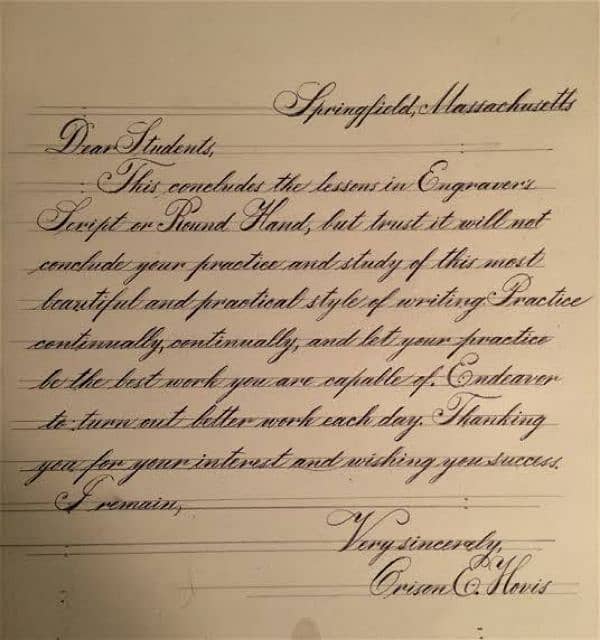 Springfield, Massachusetts
Dear Students,
This concludes the lessons in Engravers
Script or Round Hand, but trust it will not
conclude your practice and study of this most
beautiful and practical style of writing Practice
continually, continually, and let your practice
be the best work you are capable of. Endeavor
to turn out better work each day. Thanking
you for your interest and wishing you success.
I remain,
Very sincerely,
Orison E. Hovis